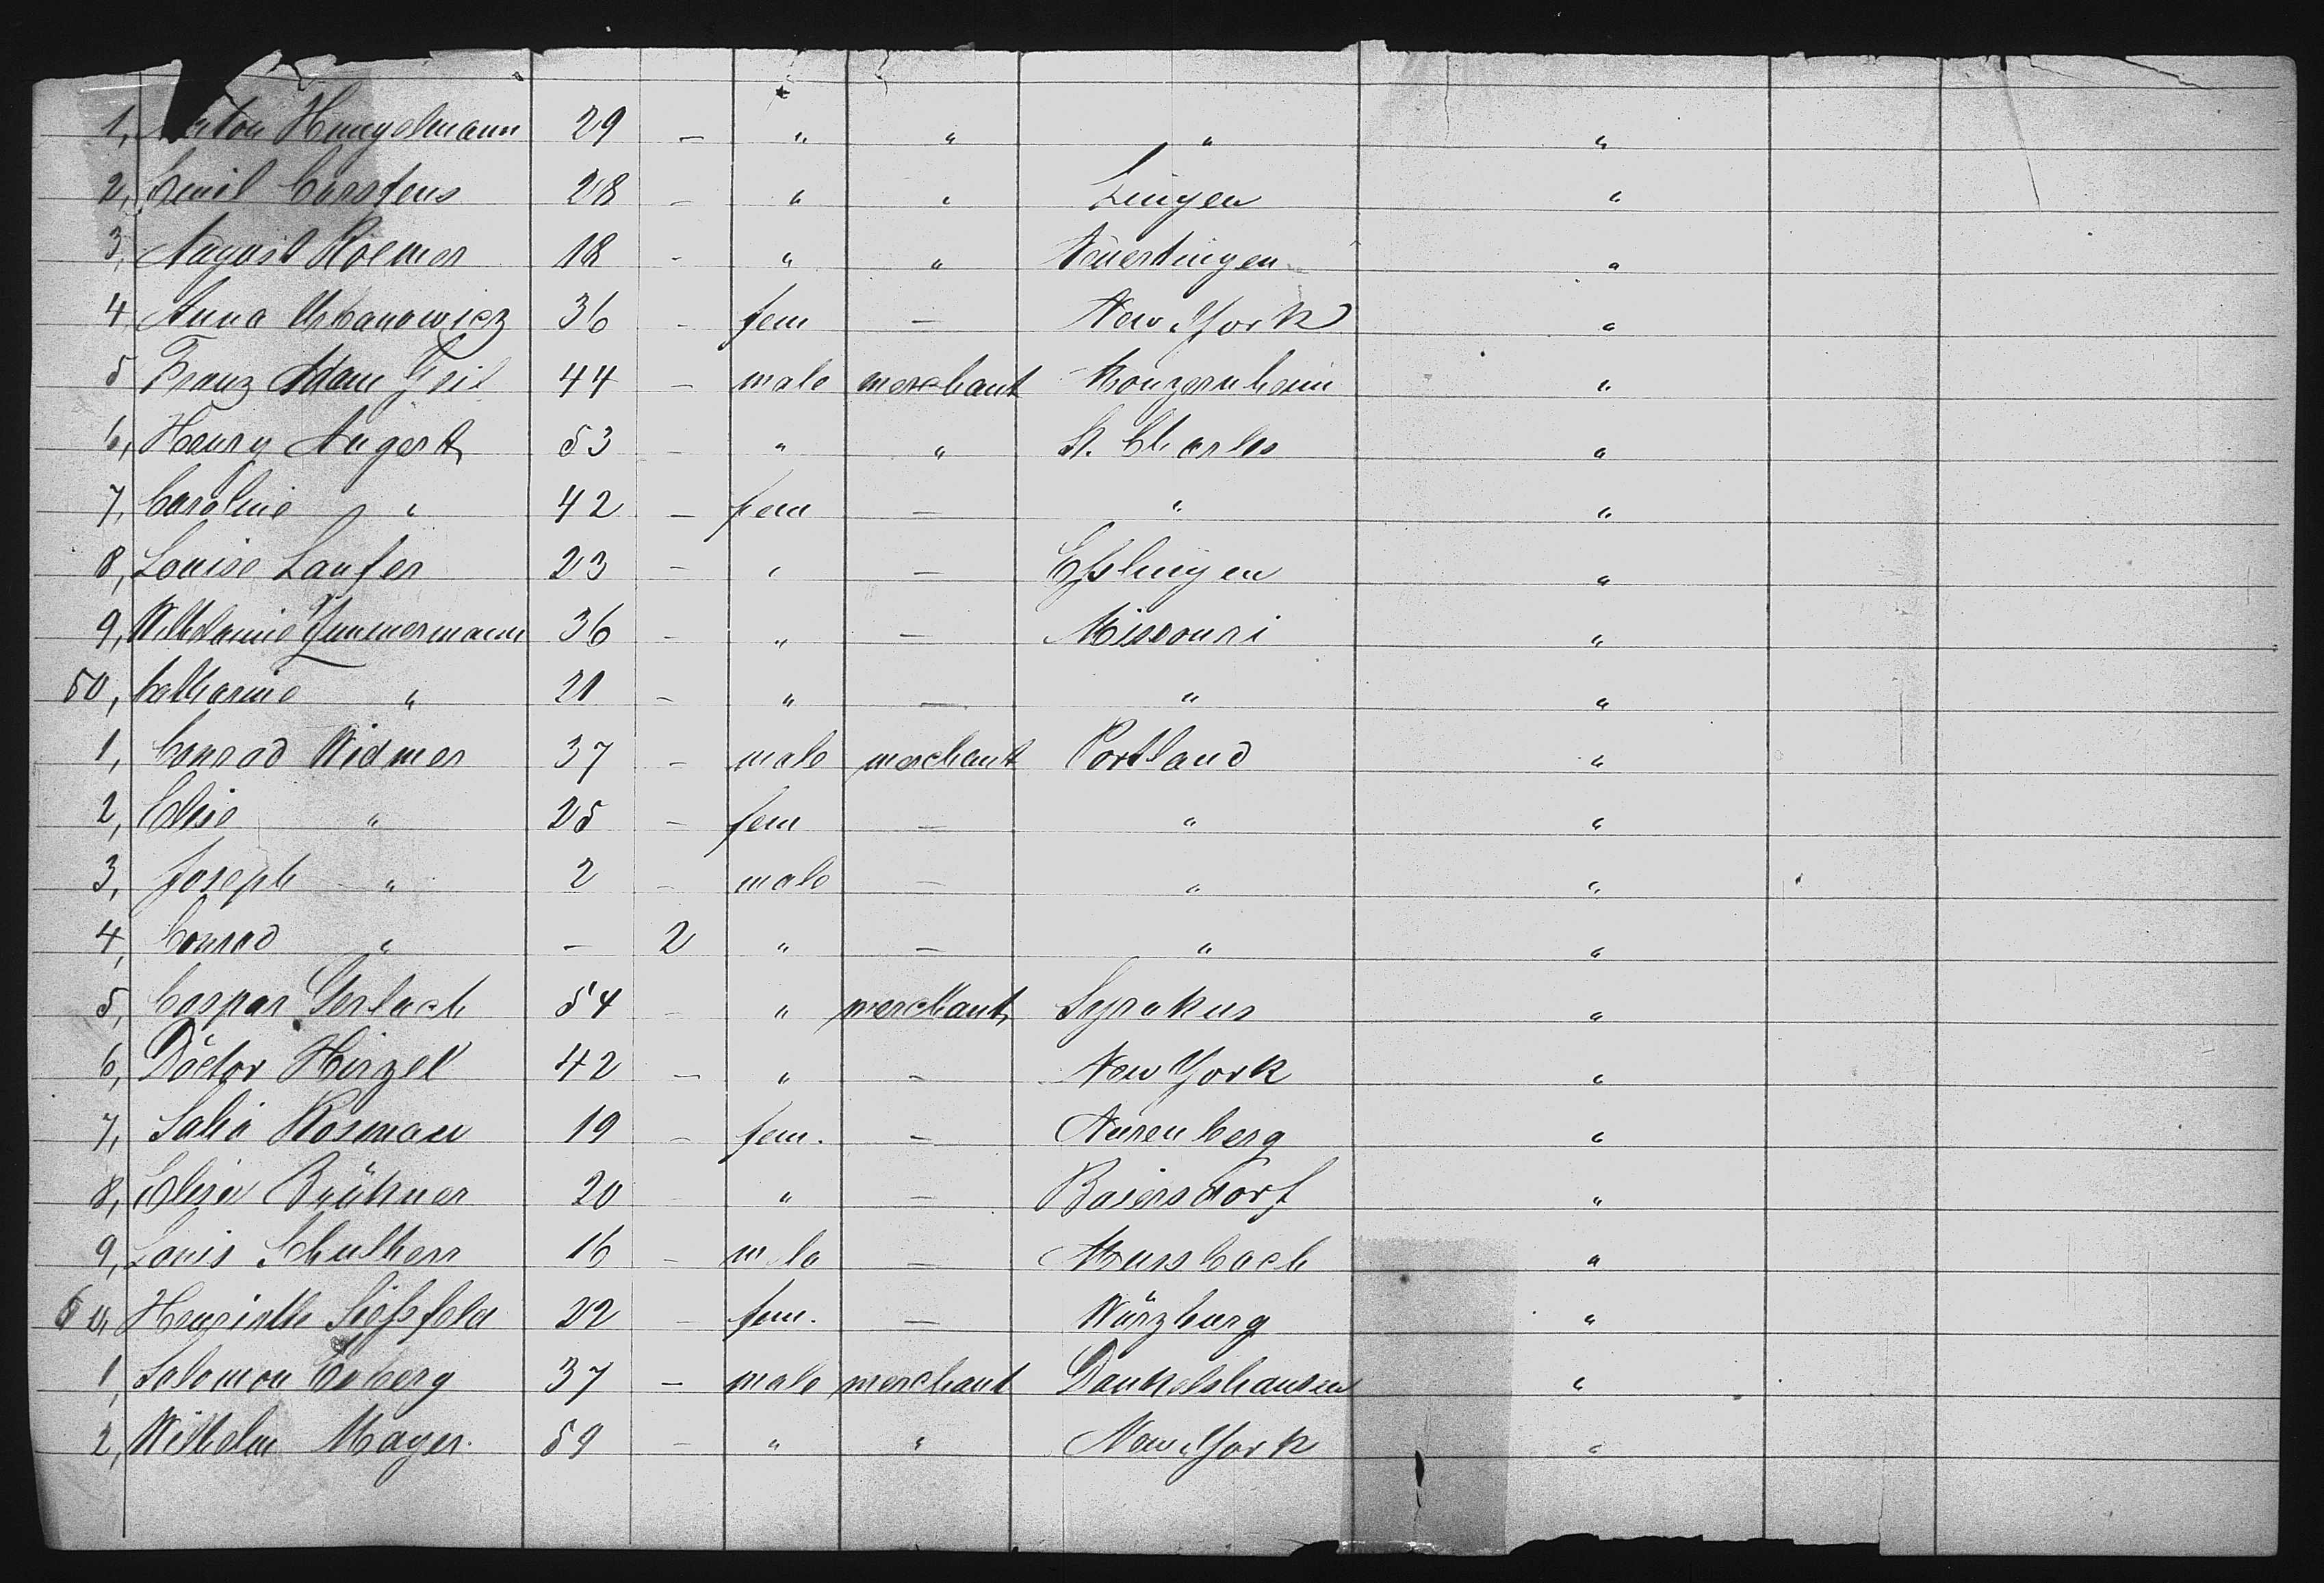 1, Anton Hengelmann 29 — " " " "
2, Emil Carstens 28 — " " Lingen "
3, August Roemer 18 - " " Nuertingen "
4 Anna Urbanowicz 36 - fem — New York "
5 Franz Adam Geil 44 — male merchant Monzernheim "
6, Henry Angert 53 — " " St. Charles "
7, Caroline " 42 — fem — " "
8, Louise Laufer 23 — " — Esslingen "
9, Wilhelmine Zimmermann 36 — " — Missouri "
50, Catharine " 21 — " — " "
1, Conrad Widmer 37 - male merchant Portland "
2, Elise " 25 — fem — " "
3, Joseph " 2 - male — " "
4, Conrad " — 2 " — " "
5, Caspar Gerlach 54 - " merchant Syrakus "
6, Doctor Hirzel 42 — " — New York "
7, Salia Rosenau 19 - fem. — Nürenberg "
8, Elise Brükner 20 - " — Baiersdorf "
9, Louis Schulherr 16 - male — Mussbach "
60, Henriette 22 - fem. — Würzburg "
1, Salomon Esberg 37 — male merchant Dankelshausen "
2, Wilhelm Mayer. 59 — " " New York "